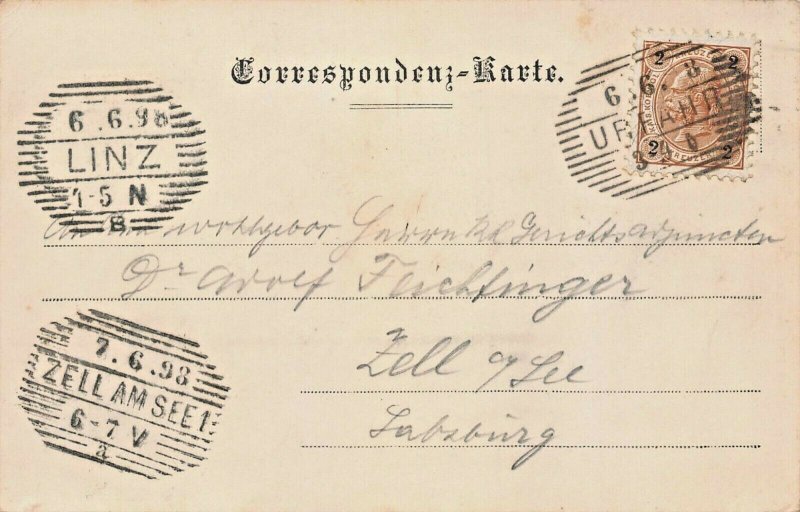 Correspondenz-Karte.
2 2
2 2
6.6.98
LINZ
1-5 N
B
6. 6. 8
UR
An wohlgebor Herrn KK Gerichtsadjuncten
Dr Adolf Feichtinger
Zell a/See
Salzburg
7.6.98
ZELL AM SEE 1
6-7 V
a